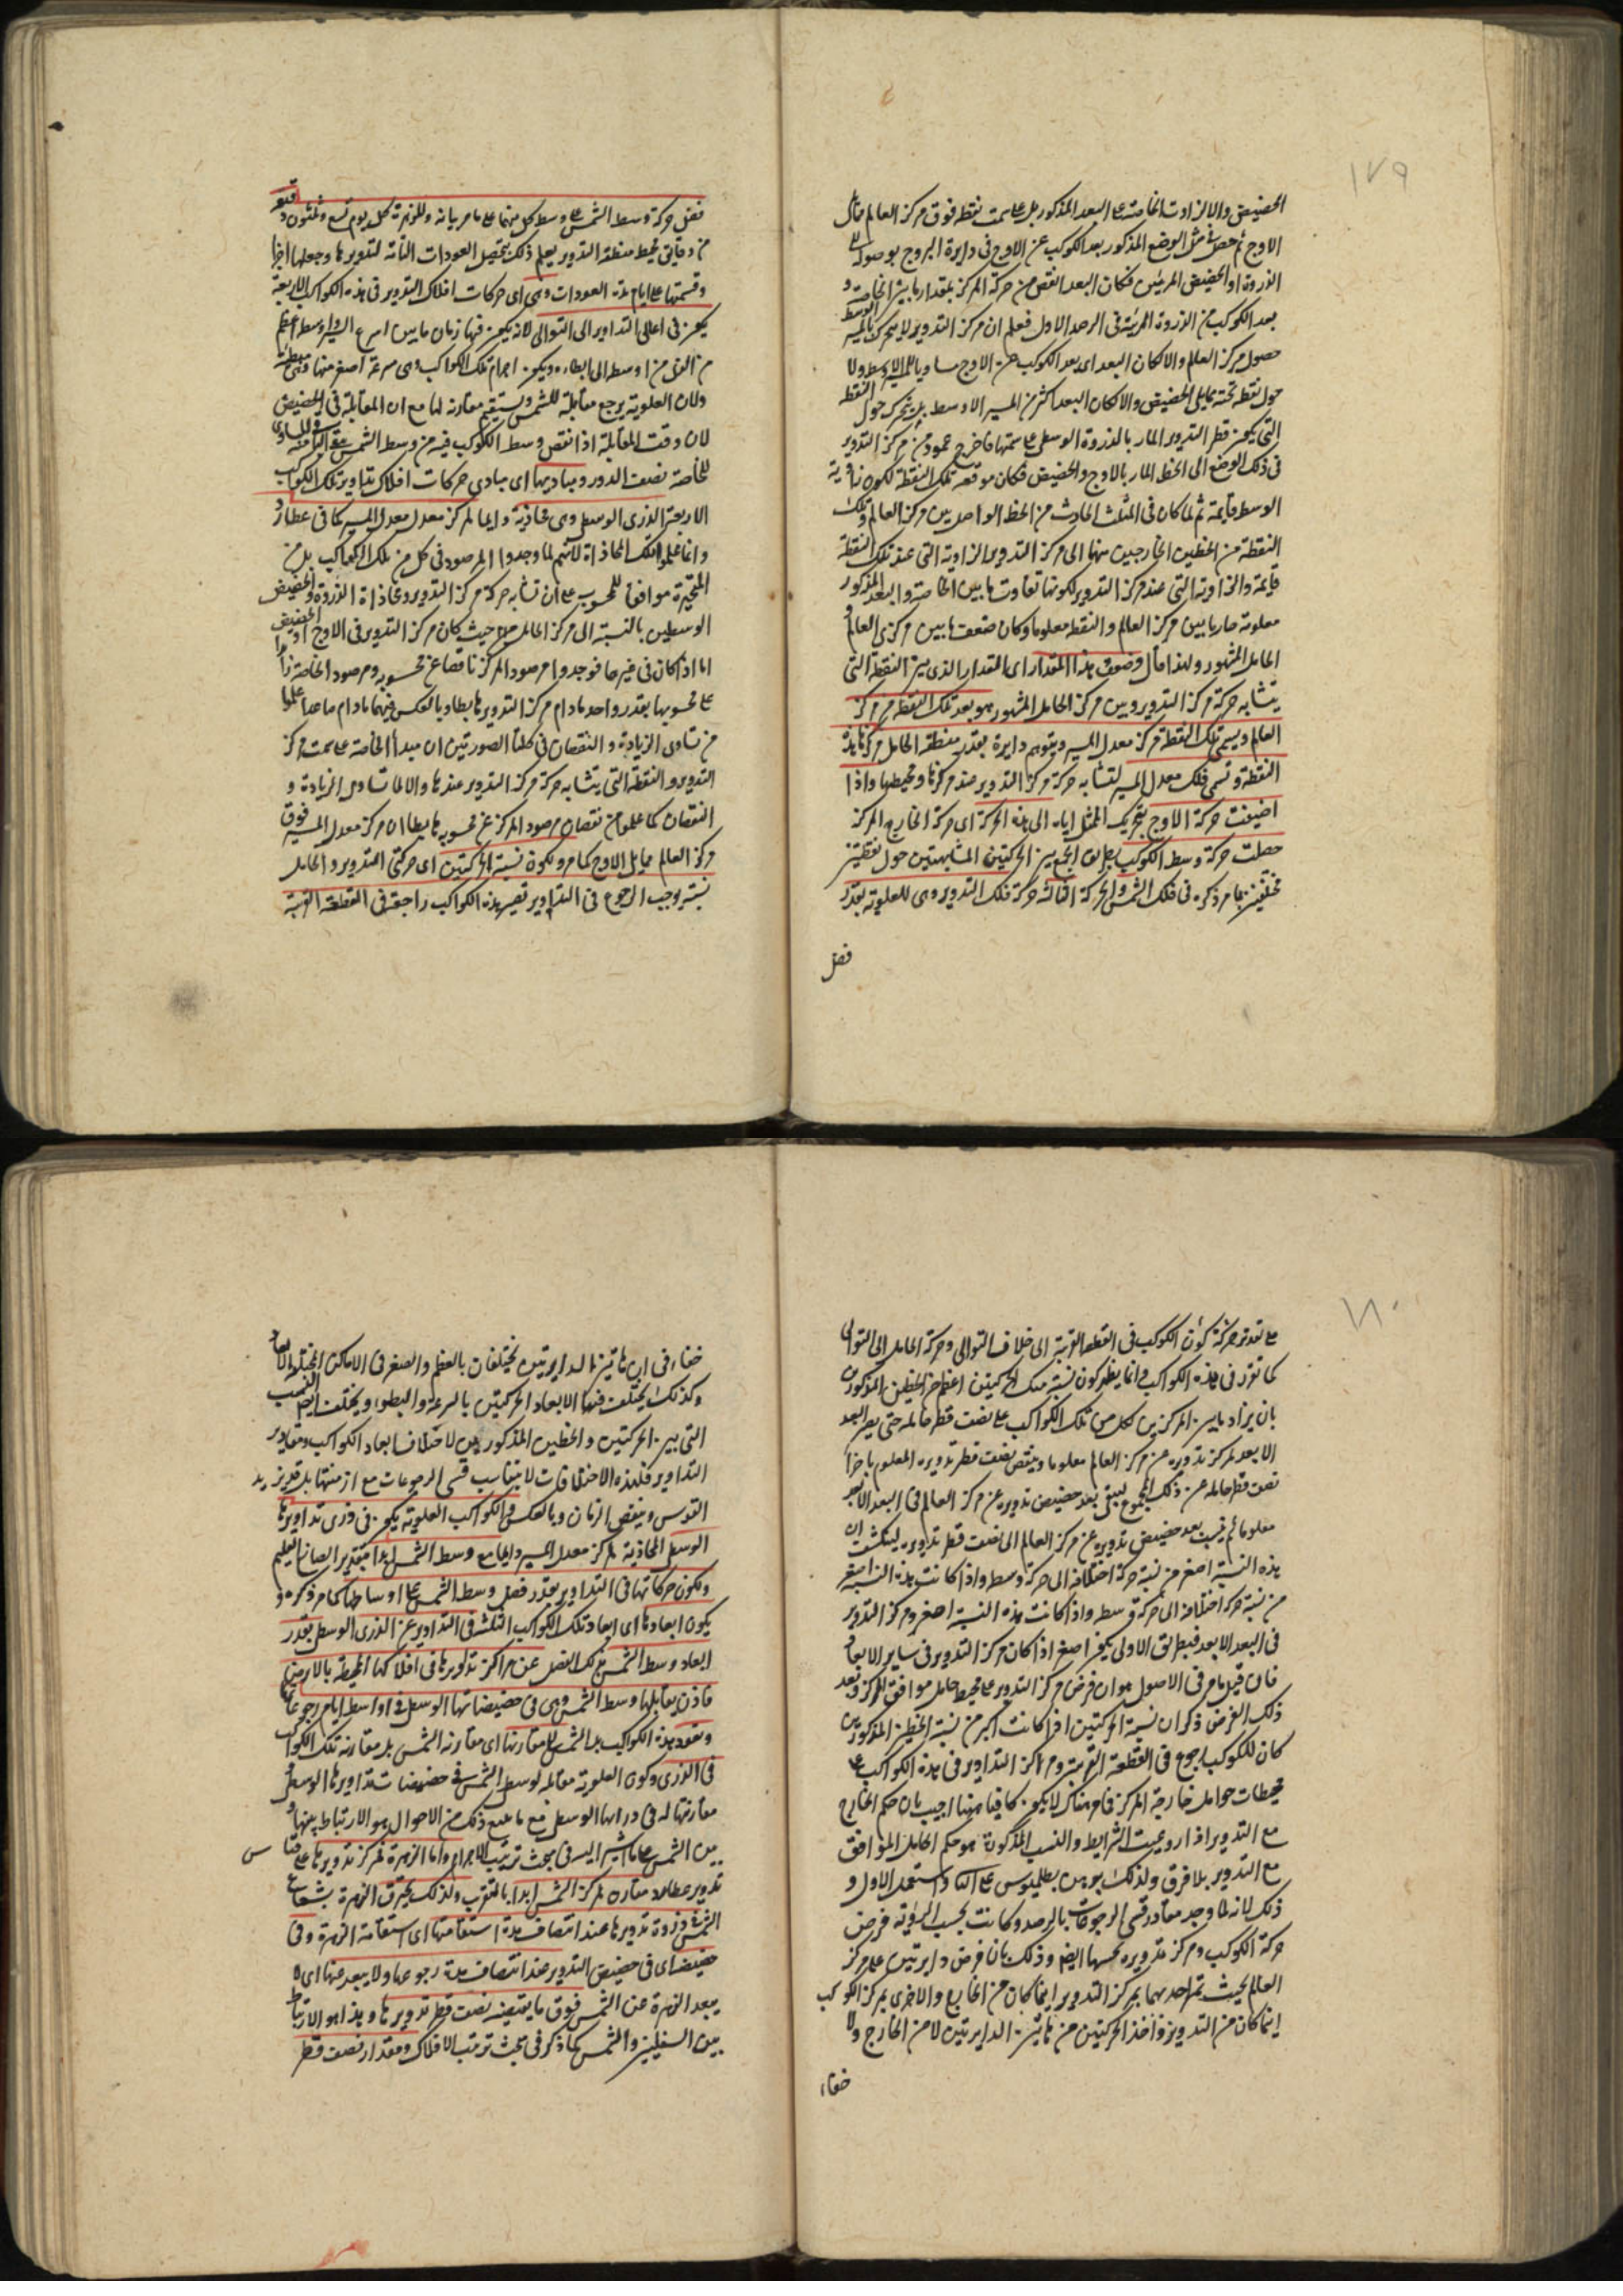 ١٧٩
الحضيض والا لزادت الخاصة على البعد المذكور بل على سمت نقطة فوق مركز العالم مما يلى
الاوج ثم حصل فى مثل الوضع المذكور بعد الكوكب عن الاوج فى دايرة البروج بوصوله الى
الذروة او الحضيض المرئيين فكان البعد انقص من حركة المركز بمقدار ما بين الخاصة و
بعد الكوكب من الذروة المرئية فى الرصد الاول فعلم ان مركز التدوير لا يتحرك بالمسير الوسط
حول مركز العالم والا لكان البعد اى بعد الكوكب عن الاوج مساويا للمسير الاوسط ولا
حول نقطة تحته مما يلى الحضيض والا لكان البعد اكثر من المسير الاوسط بل يتحرك حول النقطة
التى يكون قطر التدوير المار بالذروة الوسطى على سمتها فاخرج عمود من مركز التدوير
فى ذلك الوضع الى الخط المار بالاوج والحضيض فكان موقعه تلك النقطة لكون زاوية
الوسط قايمة ثم لما كان فى المثلث الحادث من الخط الواصل بين مركز العالم وتلك
النقطة من الخطين الخارجين منهما الى مركز التدوير الزاوية التى عند تلك النقطة
قايمة والزاوية التى عند مركز التدوير لكونها تفاوت ما بين الخاصة والبعد المذكور
معلومة صار ما بين مركز العالم والنقطة معلوما وكان ضعف ما بين مركزى العالم و
الحامل المشهور ولهذا قال وضعف هذا المقدار اى المقدار الذى بين النقطة التى
يتشابه حركة مركز التدوير وبين مركز الحامل المشهور هو بعد تلك النقطة من مركز
العالم ويسمى تلك النقطة مركز معدل المسير ويتوهم دايرة بقدر منطقة الحامل مركزها هذه
النقطة وتسمى فلك معدل المسير لتشابه حركة مركز التدوير عند مركزها ومحيطها واذا
اضيفت حركة الاوج بتحريك الممثل اياه الى هذه الحركة اى حركة الخارج المركز
حصلت حركة وسط الكوكب على الجمع بين الحركتين المتشابهتين حول نقطتين
مختلفين بما مر ذكره فى فلك الشمس والحركة الثالثة حركة فلك التدوير وهى للعلوية بقدر
فضل
فضل حركة وسط الشمس على وسط كل منها على ما مر بيانه وللزهرة كل يوم تسع وثلثون دقيقة
من دقايق محيط منطقة التدوير يعلم ذلك بتحصيل العودات التامة لتدويرها وجعلها اجزا
وقسمتها على ايام مدة العودات وهى اى حركات افلاك التدوير فى هذه الكواكب الاربعة
يكون فى اعالى التداوير الى التوالى لانه يكون فيها زمان ما بين اسرع السير واوسطه اعظم
من الذى من اوسطه الى ابطائه ويكون اجرام تلك الكواكب وهى سرعة اصغر منها وهى بطيئة
ولان العلوية يرجع مقابلة للشمس ويستقيم مقارنة لها مع ان المقابلة فى الحضيض
لان وقت المقابلة اذا نقص وسط الكوكب فيه من وسط الشمس بقى الباقى المساوى
للخاصة نصف الدور ومباديها اى مبادى حركات افلاك تداوير تلك الكواكب
الاربعة الذرى الوسطى وهى محاذية دايما لمركز معدل المسير كما فى عطارد
وانما علموا تلك المحاذاة لانهم لما وجدوا المرصود فى كل من تلك الكواكب بل من
المتحيرة موافقا للمحسوب على ان تشابه حركة مركز التدوير ومحاذاة الذروة والحضيض
الوسطين بالنسبة الى مركز الحامل حيث كان مركز التدوير فى الاوج او الحضيض
اما اذا كان فى غيرهما فوجدوا مرصود المركز ناقصا عن محسوبه ومرصود الخاصة زايدا
على محسوبها بقدر واحد ما دام مركز التدوير هابطا وبالعكس فيهما ما دام صاعدا علموا
من تساوى الزيادة والنقصان فى كلتا الصورتين ان مبدأ الخاصة على سمت مركز
التدوير والنقطة التى يتشابه حركة مركز التدوير عندها والا لما تساوى الزيادة و
النقصان كما علموا من نقصان مرصود المركز عن محسوبه هابطا ان مركز معدل المسير فوق
مركز العالم مما يلى الاوج كما مر ولكون نسبة الحركتين اى حركتى التدوير والحامل
نسبة يوجب الرجوع فى التداوير تصير هذه الكواكب راجعة فى القطعة القريبة
١٨٠
على تقدير حركة كون الكوكب فى القطعة القريبة الى خلاف التوالى وحركة الحامل الى التوالى
كما تقرر فى هذه الكواكب وانما يظهر كون نسبة تينك الحركتين اعظم من الخطين المذكورين
بان يزاد ما بين المركزين لكل من تلك الكواكب على نصف قطر حامله حتى يصير البعد
الابعد لمركز تدويره عن مركز العالم معلوما وينقص نصف قطر تدويره المعلوم باجزا
نصف قطر حامله عن ذلك المجموع ليبقى بعد حضيض تدويره عن مركز العالم فى البعد الابعد
معلوما ثم نسب بعد حضيض تدويره عن مركز العالم الى نصف قطر تدويره لينكشف ان
هذه النسبة اصغر من نسبة حركة اختلافه الى حركة وسطه واذا كانت هذه النسبة اصغر
من نسبة حركة اختلافه الى حركة وسطه واذا كانت هذه النسبة اصغر ومركز التدوير
فى البعد الابعد فبطريق الاولى يكون اصغر اذا كان مركز التدوير فى ساير الابعاد
فان قيل ما مر فى الاصول هو ان فرض مركز التدوير على محيط حامل موافق المركز وبعد
ذلك الفرض ذكر ان نسبة الحركتين اذا كانت اكبر من نسبة الخطين المذكورين
كان للكوكب رجوع فى القطعة القريبة ومراكز التداوير فى هذه الكواكب على
محيطات حوامل خارجة المركز فما مر هناك لا يكون كافيا ههنا اجيب بان حكم الخارج
مع التدوير اذا روعيت الشرايط والنسب المذكورة هو حكم الحامل الموافق
مع التدوير بلا فرق ولذلك برهن بطليموس على الثانى واستعمل الاول و
ذلك لانه لما وجد مقادير قسى الرجوعات بالرصد وكانت بحسب الرؤية فرض
حركة الكوكب ومركز تدويره بحسبها ايضا وذلك بان فرض دايرتين على مركز
العالم بحيث تمر احديهما بمركز التدوير اينما كان من الخارج والاخرى بمركز الكوكب
اينما كان من التدوير واخذ الحركتين من هاتين الدايرتين لا من الخارج ولا
خفاء
خفاء فى ان هاتين الدايرتين تختلفان بالعظم والصغر فى الاماكن المختلفة الابعاد
وكذلك يختلف فيها الابعاد الحركتين بالسرعة والبطوء ويختلف ايضا النسب
التى بين الحركتين والخطين المذكورين لاختلاف ابعاد الكواكب ومقادير
التداوير فلهذه الاختلافات لا يتناسب قسى الرجوعات مع ازمنتها بل قد يزيد
القوس وينقص الزمان وبالعكس والكواكب العلوية يكون فى ذرى تداويرها
الوسطى المحاذية لمركز معدل المسير دايما مع وسط الشمس ابدا بتقدير الصانع العليم
ويكون حركاتها فى التداوير بقدر فضل وسط الشمس على اوساطها كما مر ذكره و
يكون ابعادها اى ابعاد تلك الكواكب الثلثة فى التداوير عن الذرى الوسطى بقدر
ابعاد وسط الشمس بذلك الفضل عن مراكز تداويرها فى افلاكها المحيطة بالارض
فاذن يقابلها وسط الشمس وهى فى حضيضاتها الوسطى فى اواسط ايام رجوعها
وتعود هذه الكواكب بعد الشمس لمقارنتها اى مقارنة الشمس بل مقارنة تلك الكواكب
فى الذرى وكون العلوية مقابلة لوسط الشمس فى حضيضات تداويرها الوسطى
مقارنتها له فى ذراها الوسطى مع ما يتبع ذلك من الاحوال هو الارتباط بينها و
بين الشمس على ما اشير اليه فى بحث ترتيب الاجرام واما الزهرة فمركز تدويرها على قياس
تدوير عطارد مقارن لمركز الشمس ابدا بالتقريب ولذلك يحترق الزهرة بشعاع
الشمس وذروة تدويرها عند انتصاف مدة استقامتها اى استقامة الزهرة وفى
حضيضه اى فى حضيض التدوير عند انتصاف مدة رجوعها ولا يبعد عنها اى لا
يبعد الزهرة عن الشمس فوق ما يقتضيه نصف قطر تدويرها وهذا هو الارتباط
بين السفليين والشمس كما ذكر فى بحث ترتيب الافلاك ومقدار نصف قطر